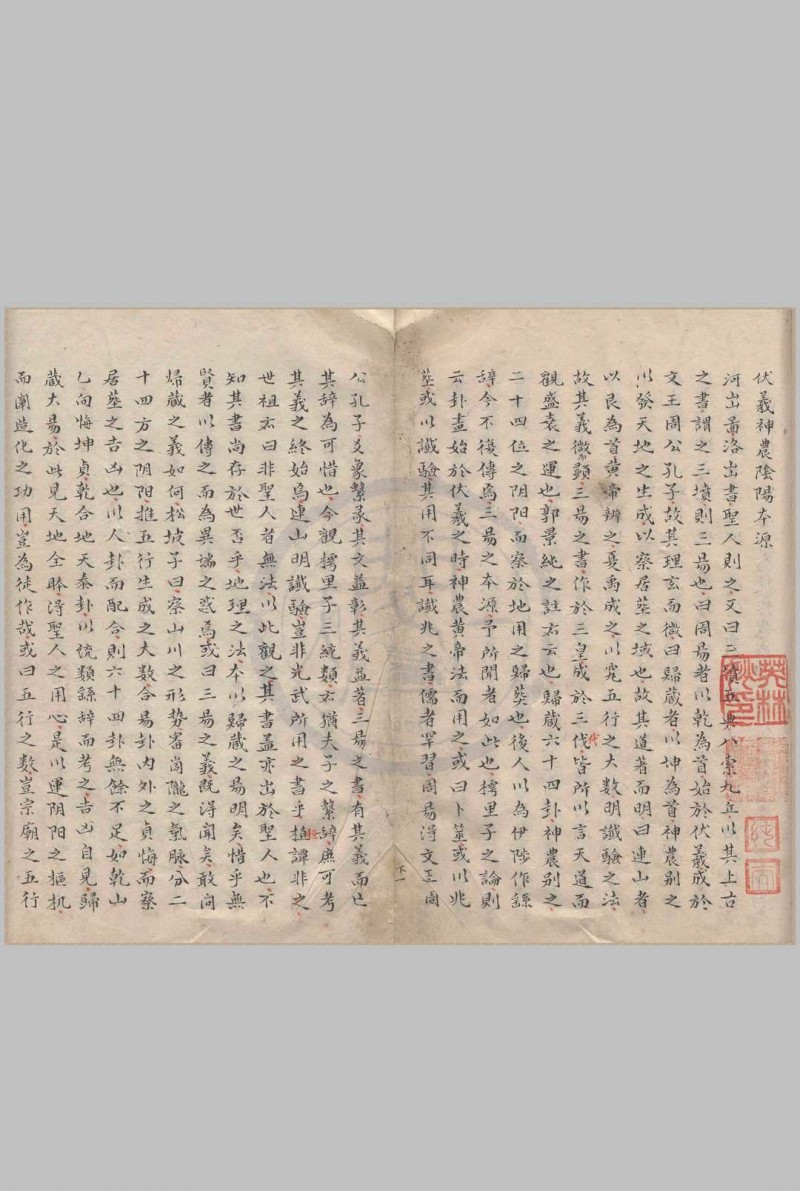 伏羲神農陰陽本源
河出啚洛出書聖人則之又曰三墳五典八索九丘以其上古
之書謂之三墳則三易也曰周易者以乾為首始於伏羲成於
文王周公孔子故其理玄而微曰歸藏者以坤為首神農别之
以發天地之生成以察居塟之域也故其道著而明曰連山者
以艮為首黄帝辨之夏禹成之以窮五行之大數明讖驗之法
故其義微而顯三易之書作於三皇成於三代皆所以言天道而
觀盛衰之運也郭景純之註玄云也歸藏六十四卦神農别之
二十四位之阴阳而察於地用之歸葬也後人以為伊陟作繇
辞今不復傳焉三易之本源予所聞者如此也樗里子之論則
云卦畫始於伏羲之時神農黄帝法而用之或曰卜筮或以兆
塟或以讖驗其用不同耳讖兆之書儒者罕習周易得文王周
下一
公孔子爻象繫彖其文益彰其義益著三易之書有其義而亡
其辞為可惜也今觀樗里子三統類玄猶夫子之繫辞庶可考
其義之終始焉連山明讖驗豈非光武所用之書乎桓譚非之
世祖玄曰非聖人者無法以此觀之其書盖亦出於聖人也不
知其書尚存於世否乎地理之法本以歸蔵之易明矣惜乎無
賢者以傳之而為異端之惑焉或曰三易之義既得聞矣敢问
㱕蔵之義如何松坡子曰察山川之形势審崗隴之氣脉分二
十四方之阴阳推五行生成之大数合易卦内外之貞悔而察
居塟之吉凶也以人卦而配合則六十四卦無餘不足如乾山
乙向悔坤貞乾合地天泰卦以統類繇辞而考之吉凶自見歸
蔵大易於此見天地全体得聖人之用心是以運阴阳之樞机
而闡造化之功用豈為徒作哉或曰五行之数豈宗廟之五行